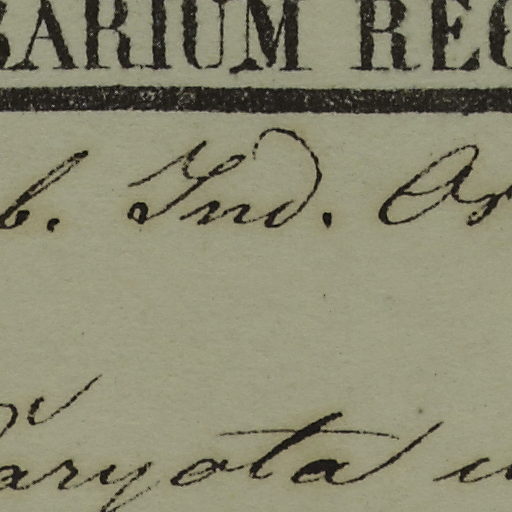 BARIUM REG
b. Ind. Or
Caryota u